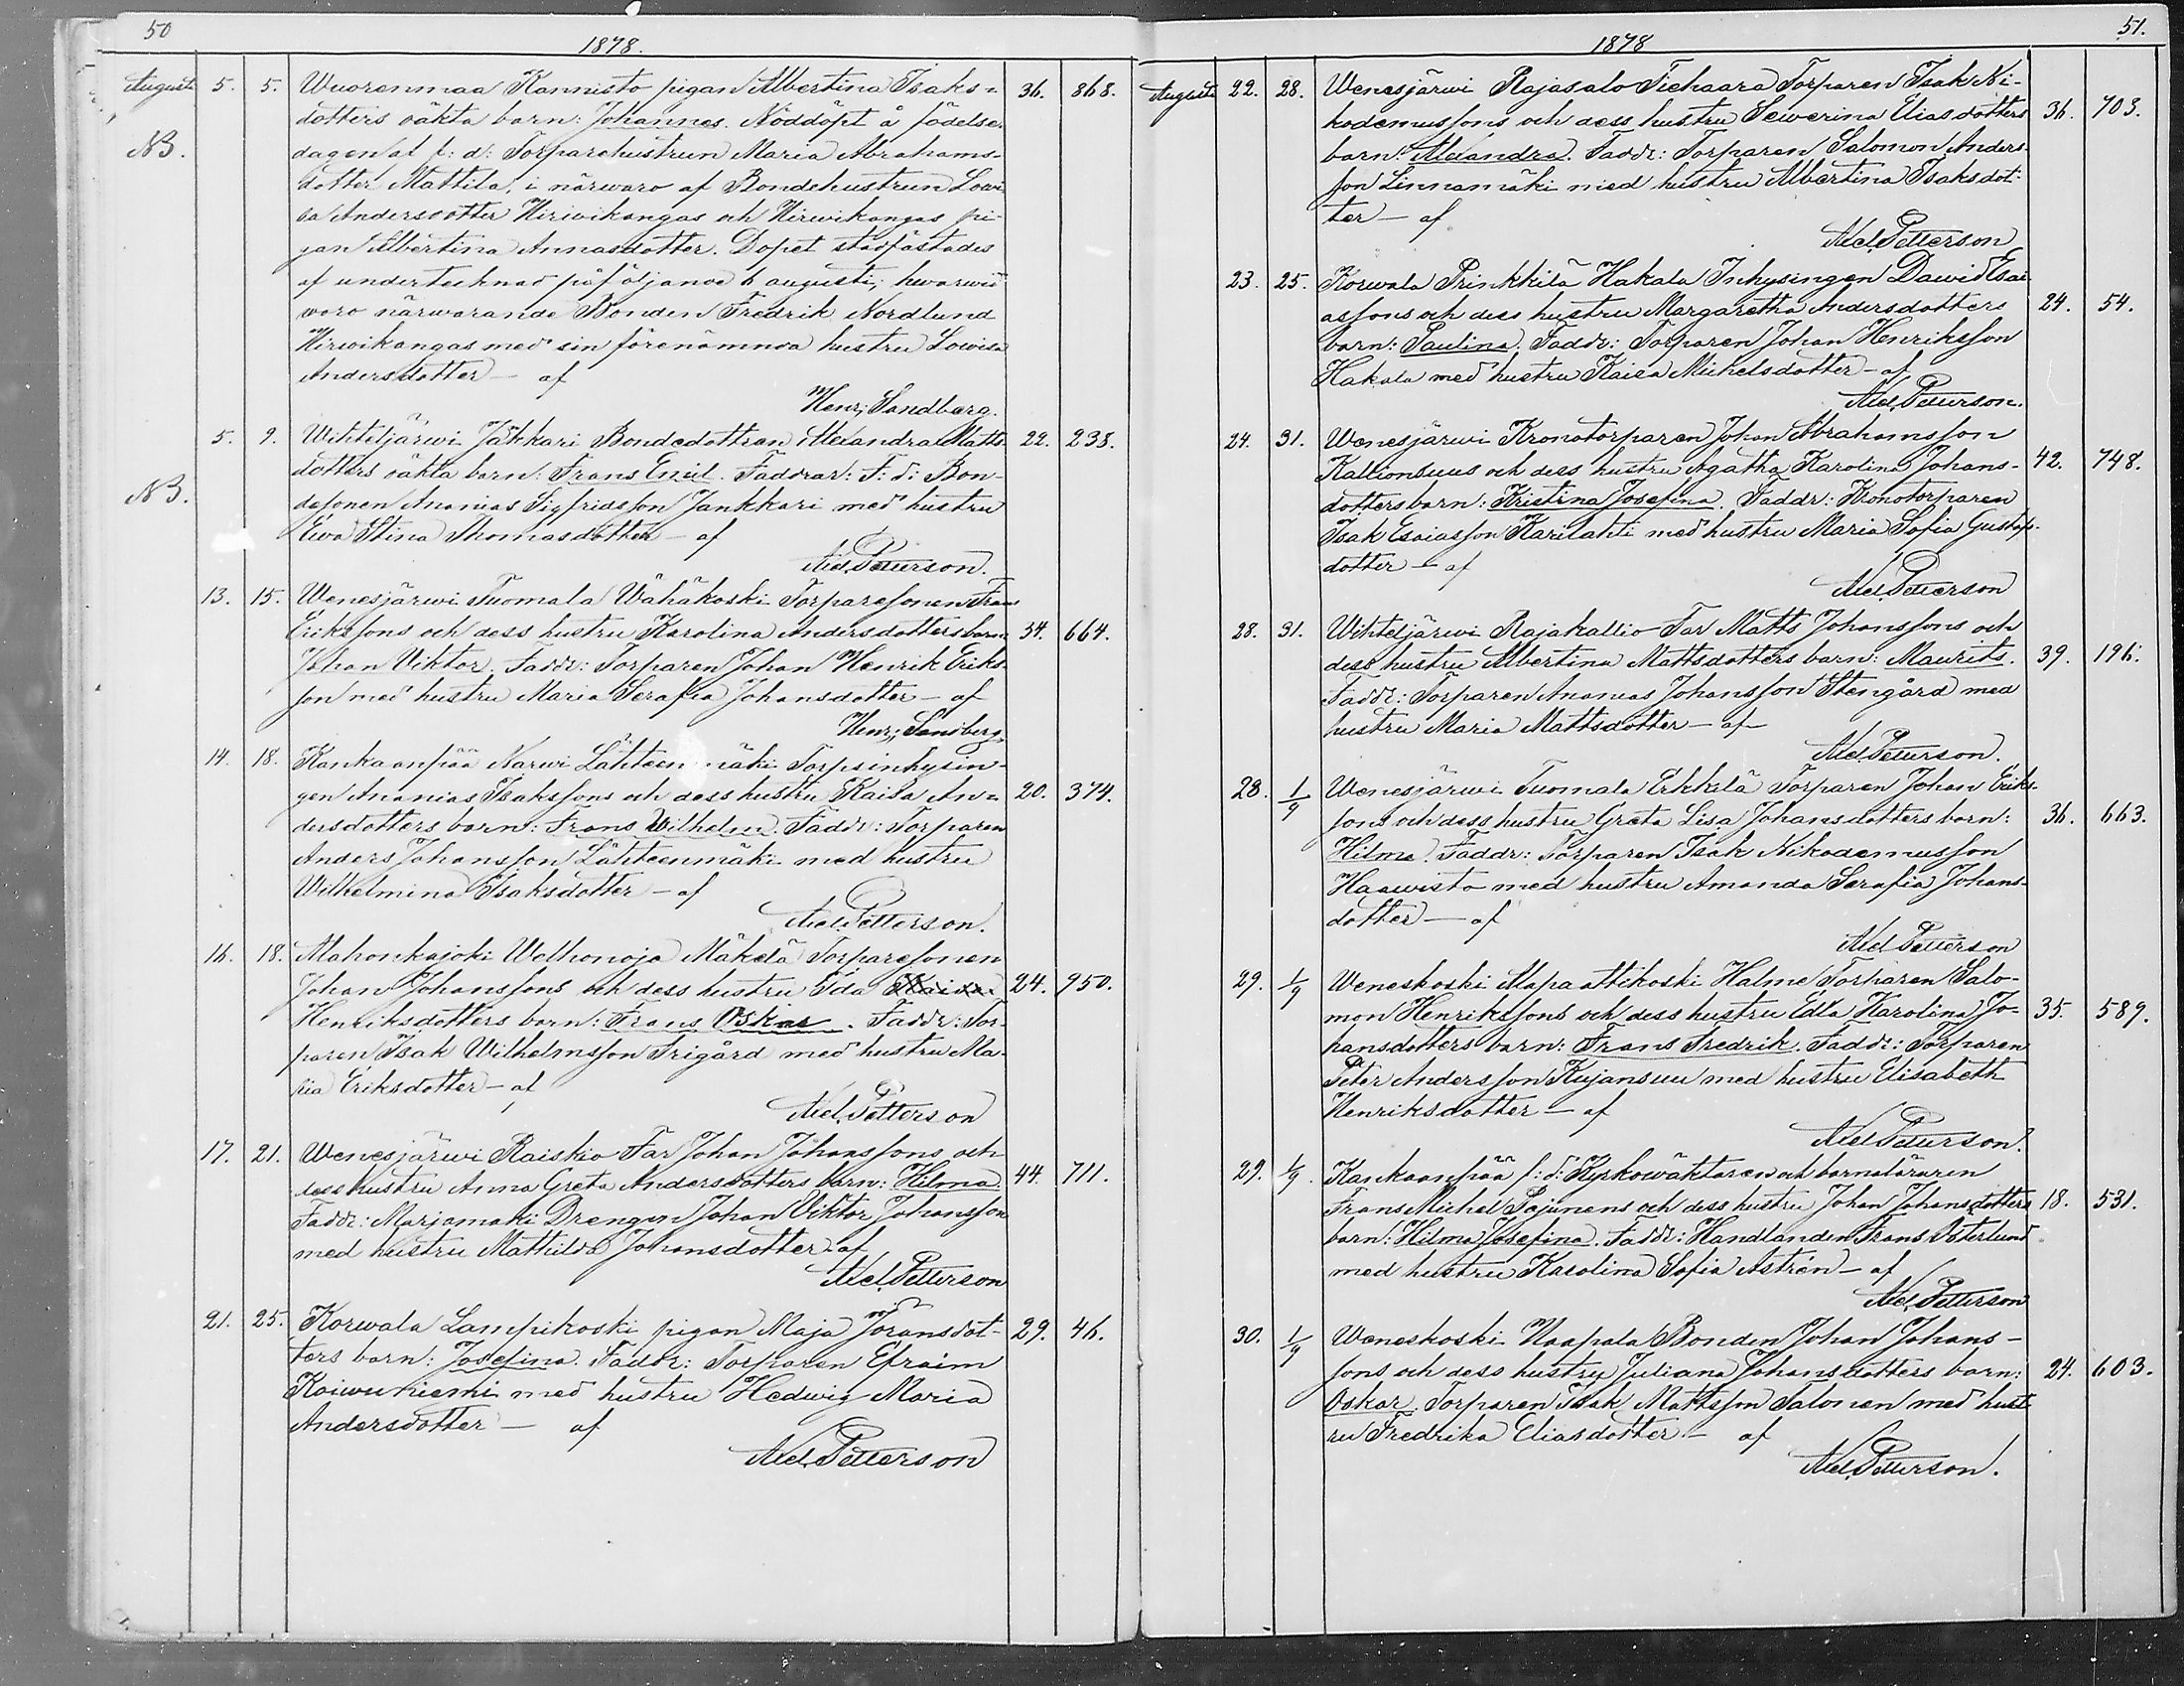 50
1878.
Augusti 5. 5. Wuorenmaa Kannisto pigan Albertina Isaks= 36. 868.
dotters oäkta barn: Johannes. Nöddöpt å födelse-
NB. dagen af f: d: Torparehustrun Maria Abrahams-
dotter Mattila, i närwaro af Bondehustrun Lowi
sa Andersdotter Hirwikangas och Hirwikangas pi-
gan Albertina Annasdotter. Dopet stadfästades
af undertecknad påföljande 6 augusti, hwarwid
woro närwarande Bonden Fredrik Nordlund
Hirwikangas med sin förenämnda hustru Lowisa
Andersdotter — af
Henr; Sandberg.
5. 9. Wihteljärwi Jäkkari Bondedottren Alexandra Matts- 22. 238.
dotters oäkta barn: Frans Emil. Faddrar: F: d: Bon-
NB. desonen Ananias Sigfridsson Jankkari med hustru
Ewa Stina Thomasdotter — af
Axel Petterson.
13. 15. Wenesjärwi Tuomala Wähäkoski Torparesonen Frans
Erikssons och dess hustru Karolina Andersdotters barn 34. 664.
Johan Viktor. Faddr: Torparen Johan Henrik Eriks-
son med hustru Maria Serafia Johansdotter — af
Henr; Sandberg.
14. 18. Kankaanpää Narwi Lähteenmäki Torpsinhysin-
gen Ananias Isakssons och dess hustru Kaisa An= 20. 374.
dersdotters barn: Frans Wilhelm. Faddr: Torparen
Anders Johansson Lähteenmäki med hustru
Wilhelmina Isaksdotter — af
Axel Petterson.
16. 18. Alahonkajoki Welhonoja Mäkelä Torparesonen
Johan Johanssons och dess hustru Ida Kaisa 24. 950.
Henriksdotters barn: Frans Oskar. Faddr: Tor-
paren Isak Wilhelmsson Frigård med hustru Ma-
ria Eriksdotter — af
Axel Petterson
17. 21. Wenesjärwi Raiskio Far Johan Johanssons och
dess hustru Anna Greta Andersdotters barn: Hilma 44. 711.
Faddr: Marjamäki Drengen Johan Viktor Johansson
med hustru Mathilda Johansdotter af
Axel Petterson
21. 25. Korwala Lampikoski pigan Maja Göransdot- 29. 46.
ters barn: Josefina. Faddr: Torparen Efraim
Koiwuniemi med hustru Hedwig Maria
Andersdotter — af
Axel Petterson
51.
1878
Augusti 22. 28. Wenesjärwi Rajasalo Tiehaara Torparen Isak Ni-
kodemussons och dess hustru Sewerina Eliasdotters 36. 703.
barn: Alexandra. Faddr: Torparen Salomon Anders-
son Linnamäki med hustru Albertina Isaksdot-
ter — af
Axel Petterson
23. 25. Korwala Prinkkilä Hakala Inhysingen Dawid Esai
assons och dess hustru Margaretha Andersdotters 24. 54.
barn: Paulina. Faddr: Torparen Johan Henriksson
Hakala med hustru Kaisa Michelsdotter — af
Axel Petterson.
24. 31. Wenesjärwi Kronotorparen Johan Abrahamsson
Kallionsuus och dess hustru Agatha Karolina Johans- 42. 748.
dotters barn: Kristina Josefina. Faddr: Kronotorparen
Isak Esaiasson Karilahti med hustru Maria Sofia Gustafs-
dotter — af
Axel Petterson
28. 31. Wihteljärwi Rajakallio Far Matts Johanssons och
dess hustru Albertina Mattsdotters barn: Maurits. 39. 196.
Faddr: Torparen Ananias Johansson Stengård med
hustru Maria Mattsdotter — af
Axel Petterson.
28. 1/9 Wenesjärwi Tuomala Erkkilä Torparen Johan Eriks-
sons och dess hustru Greta Lisa Johansdotters barn: 36. 663.
Hilma. Faddr: Torparen Isak Nikodemusson
Haawisto med hustru Amanda Serafia Johans-
dotter — af
Axel Petterson
29. 1/9 Weneskoski Alapaattikoski Halme Torparen Salo-
mon Henrikssons och dess hustru Edla Karolina Jo- 35. 589.
hansdotters barn: Frans Fredrik. Faddr: Torparen
Peter Andersson Kujansuu med hustru Elisabeth
Henriksdotter — af
Axel Petterson.
29. 1/9. Kankaanpää f: d: Kyrkowäktaren och barnaläraren
Frans Michel Sajunens och dess hustru Johan Johansdotters 18. 531.
barn: Hilma Josefina. Faddr: Handlanden Frans Österlund
med hustru Karolina Sofia Astrén — af
Axel Petterson
30. 1/9 Weneskoski Haapala Bonden Johan Johans-
sons och dess hustru Juliana Johansdotters barn: 24. 603.
Oskar. Torparen Isak Mattsson Salonen med hust
ru Fredrika Eliasdotter — af
Axel Petterson.